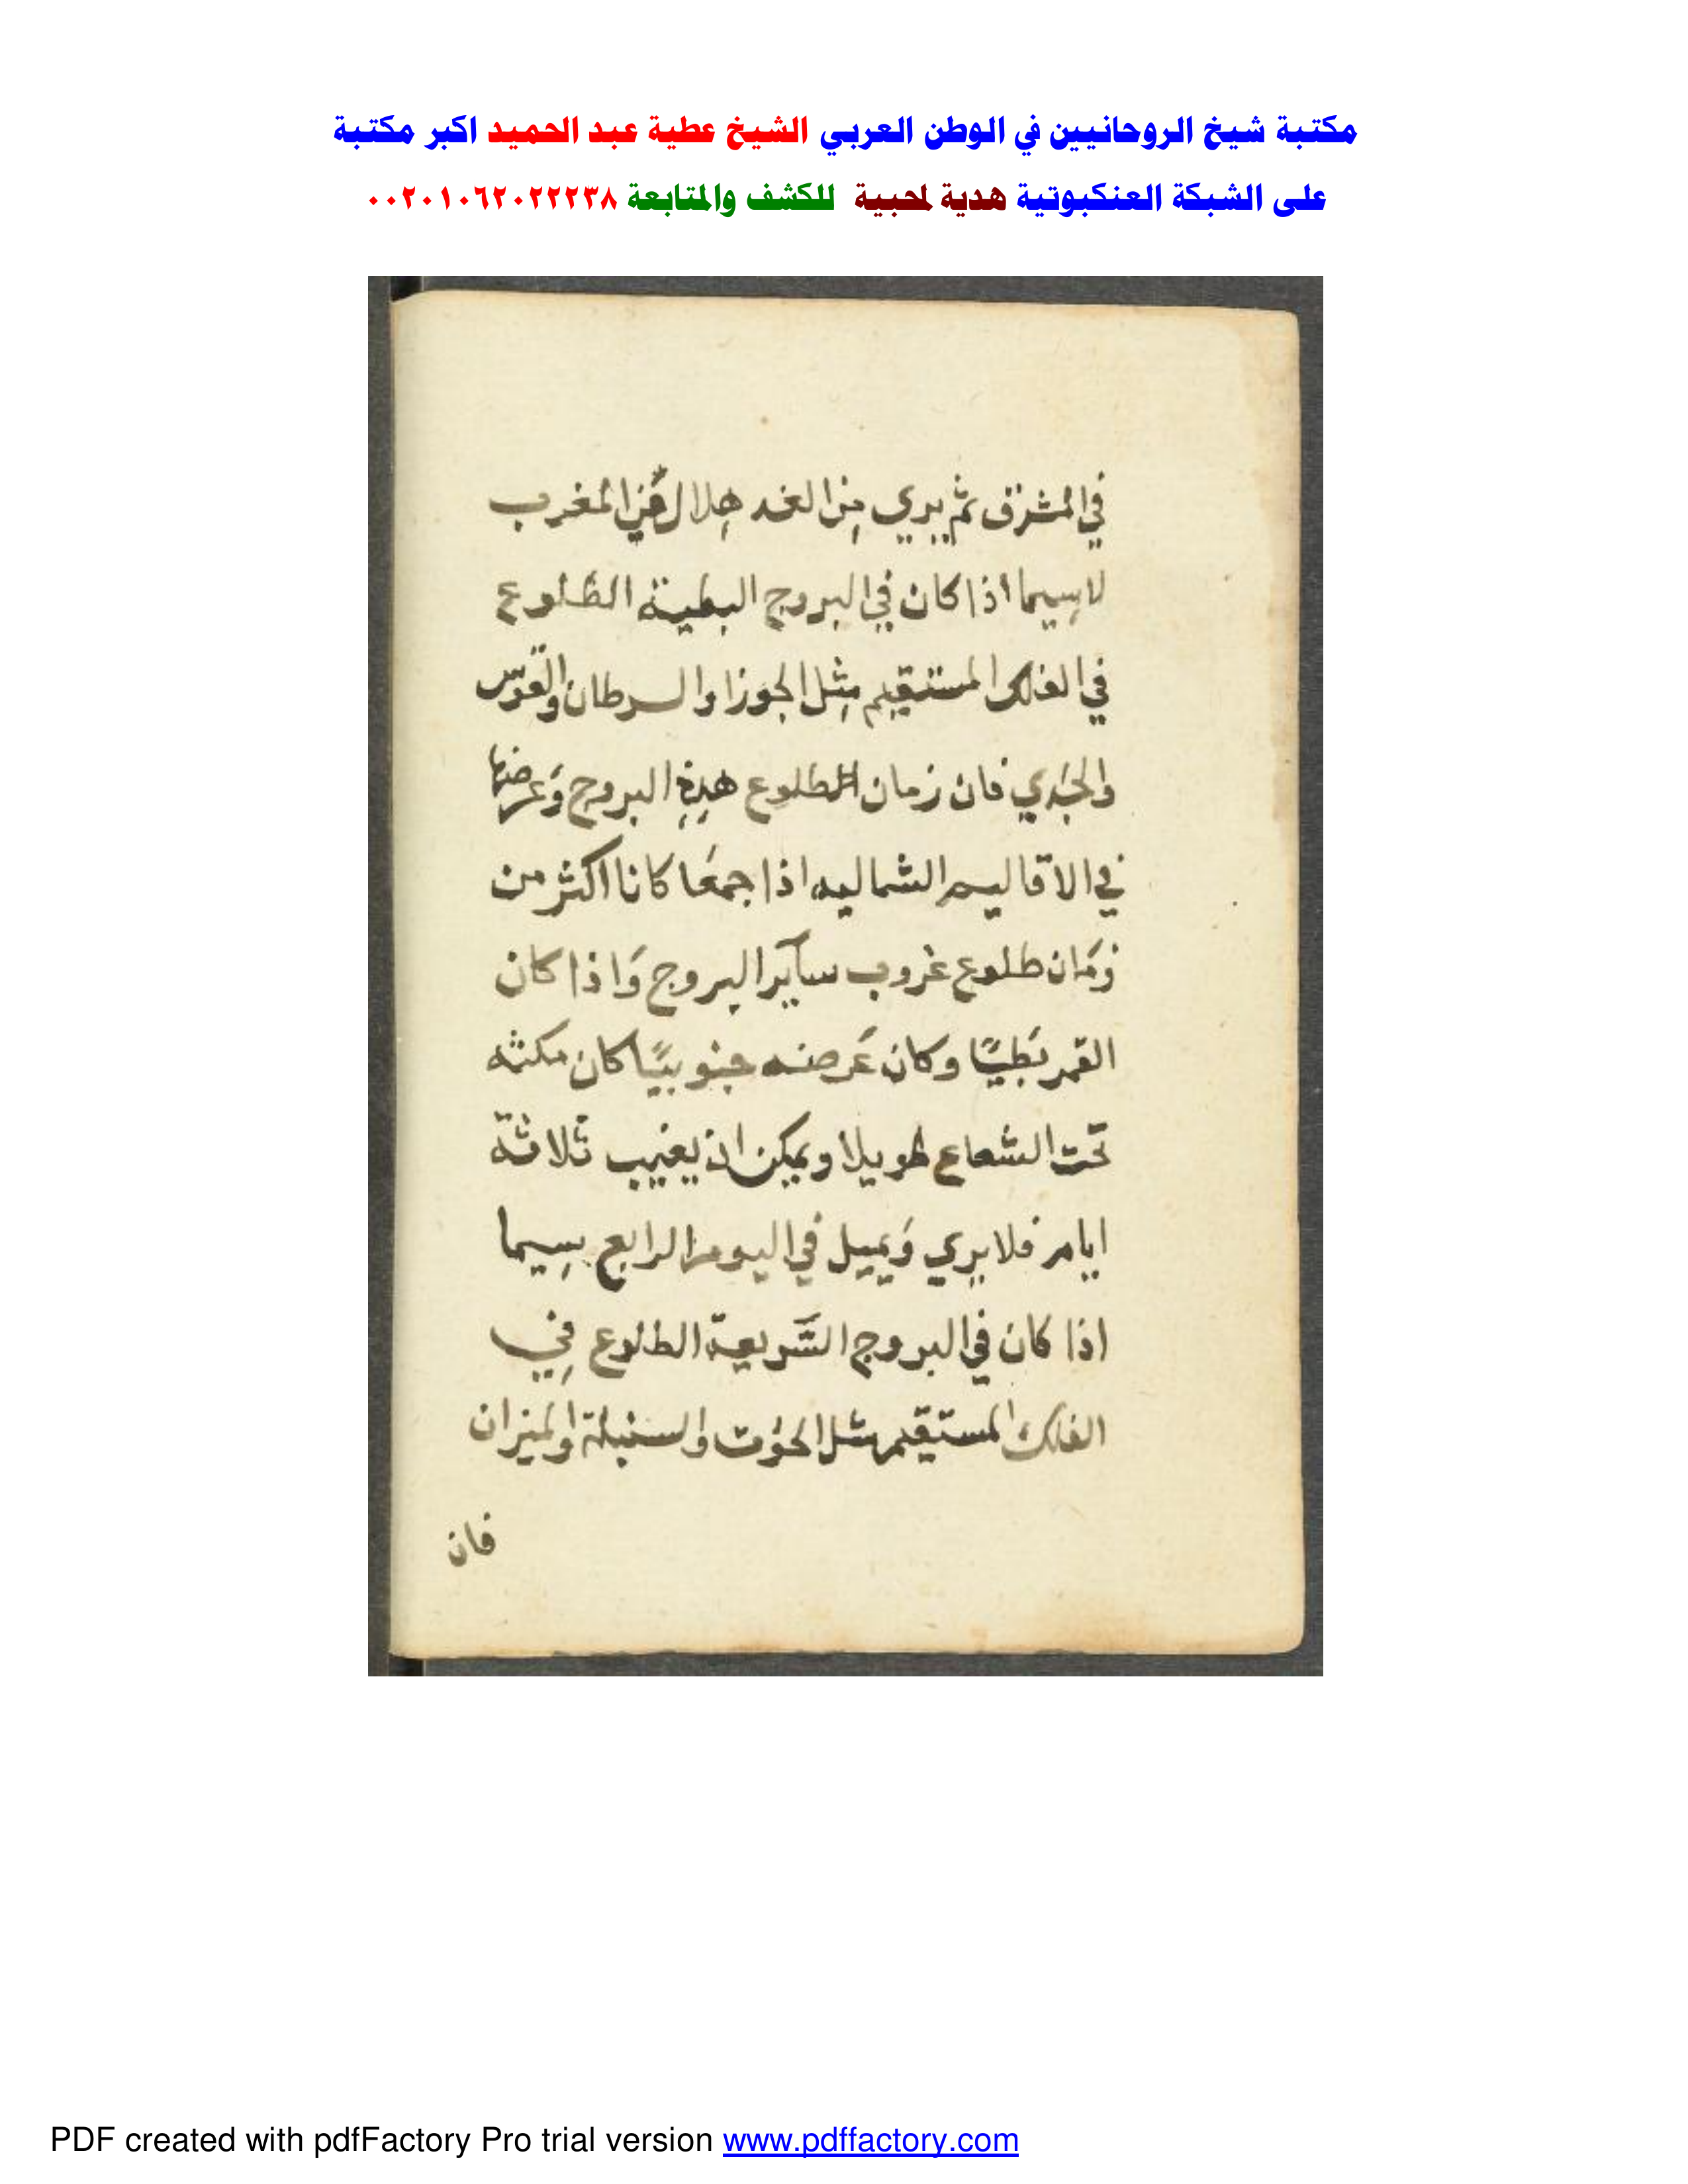 مكتبة شيخ الروحانيين في الوطن العربي الشيخ عطية عبد الحميد اكبر مكتبة
على الشبكة العنكبوتية هدية لمحبية للكشف والمتابعة ٠٠٢٠١٠٦٢٠٢٢٢٣٨
في المشرق ثم يري من الغد هلال في المغرب
لا سيما اذا كان في البروج البطيئة الطلوع
في الفلك المستقيم مثل الجوزا والسرطان والقوس
والجدي فان زمان الطلوع هذه البروج وعرضها
في الاقاليم الشماليه اذا جمعا كانا اكثر من
زمان طلوع غروب سآير البروج وَاذا كان
القمر بَطيًا وكان عَرضه جنوبيًا كان مكثه
تحت الشعاع طويلا ويمكن ان يغيب ثلاثة
ايام فلا يري وَيميل في اليوم الرابع سيما
اذا كان في البروج السَّريعة الطلوع في
الفلك المستقيم مثل الحوت والسنبلة والميزان
فان
PDF created with pdfFactory Pro trial version www.pdffactory.com